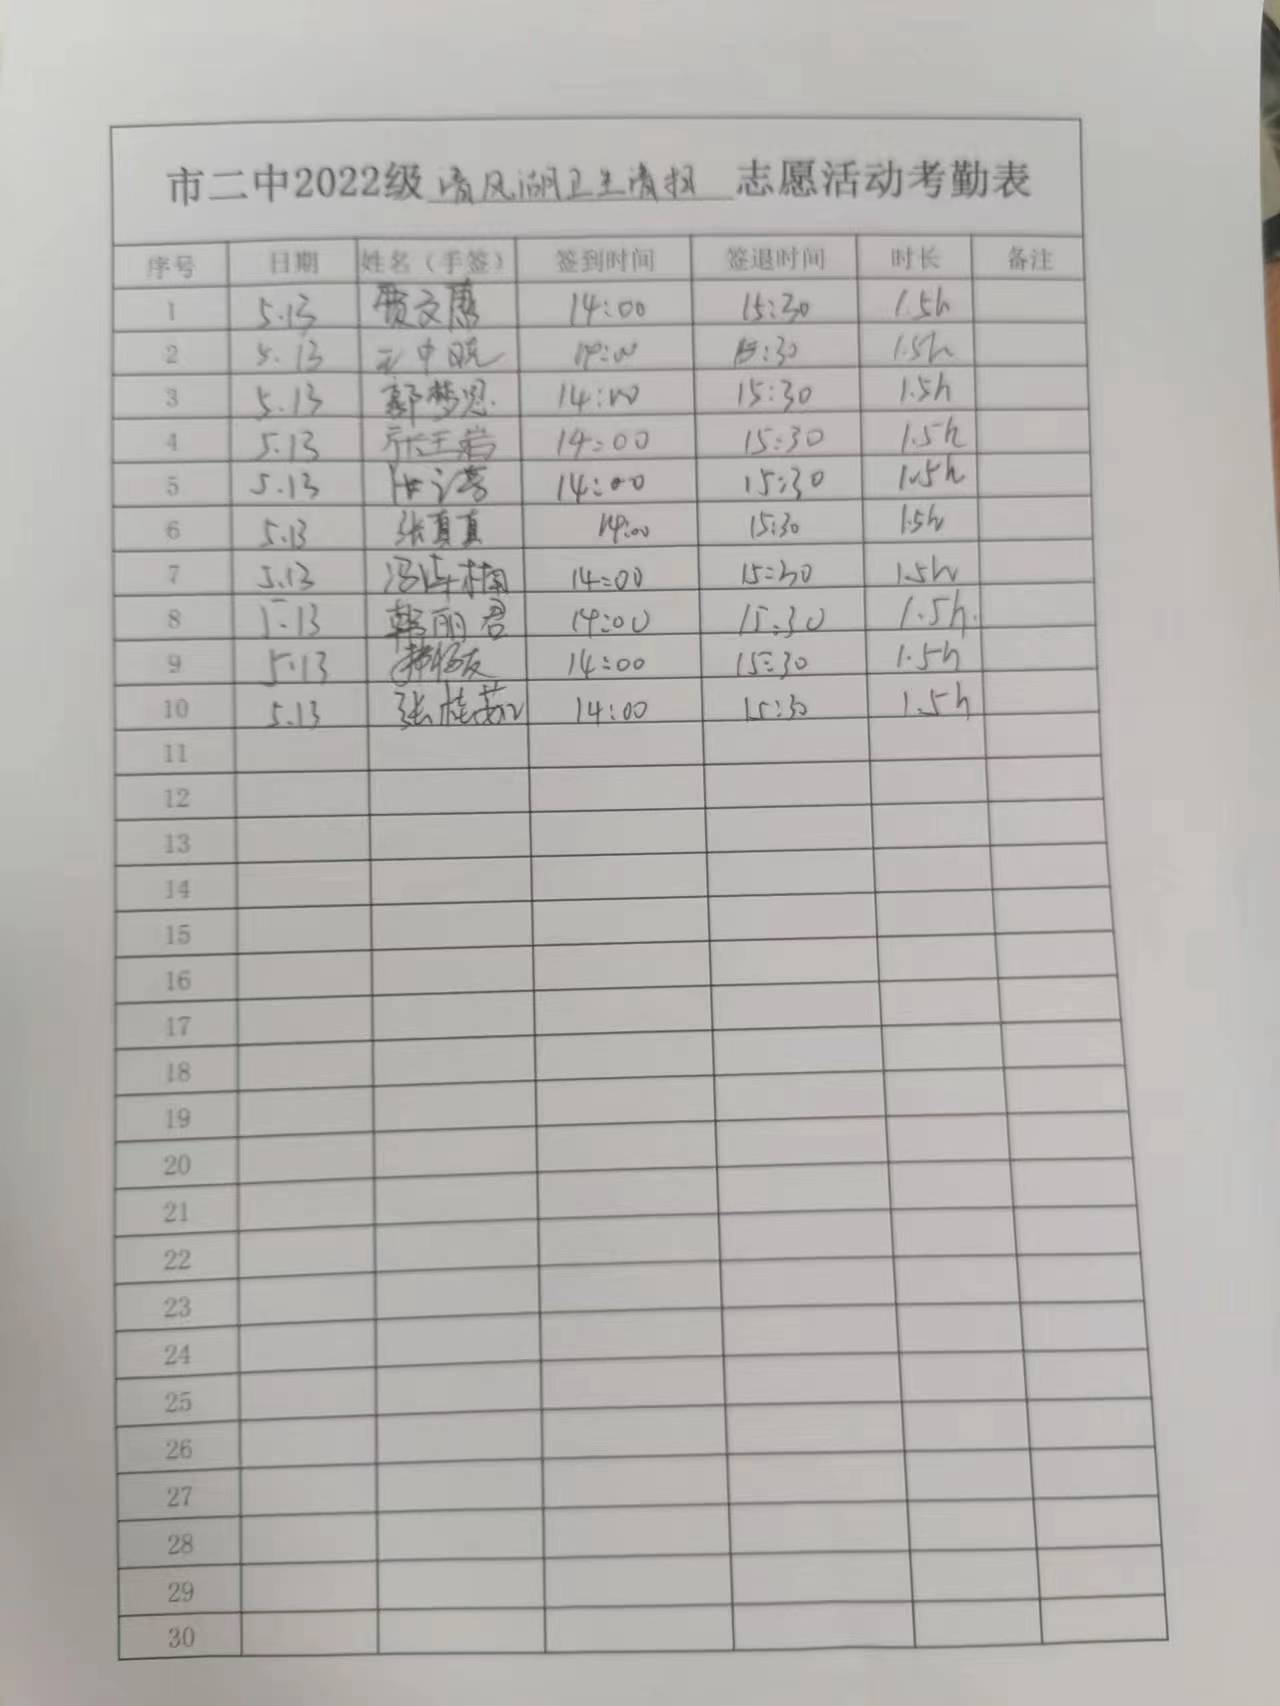 市二中2022级 清风湖卫生清扫 志愿活动考勤表
序号 日期 姓名（手签） 签到时间 签退时间 时长 备注
1 5.13 贾文惠 14:00 15:30 1.5h
2 5.13 14:00 15:30 1.5h
3 5.13 郭梦思 14:00 15:30 1.5h
4 5.13 14:00 15:30 1.5h
5 5.13 14:00 15:30 1.5h
6 5.13 张真真 14:00 15:30 1.5h
7 5.13 14:00 15:30 1.5h
8 5.13 韩丽君 14:00 15:30 1.5h.
9 5.13 14:00 15:30 1.5h
10 5.13 张桂茹 14:00 15:30 1.5h
11
12
13
14
15
16
17
18
19
20
21
22
23
24
25
26
27
28
29
30